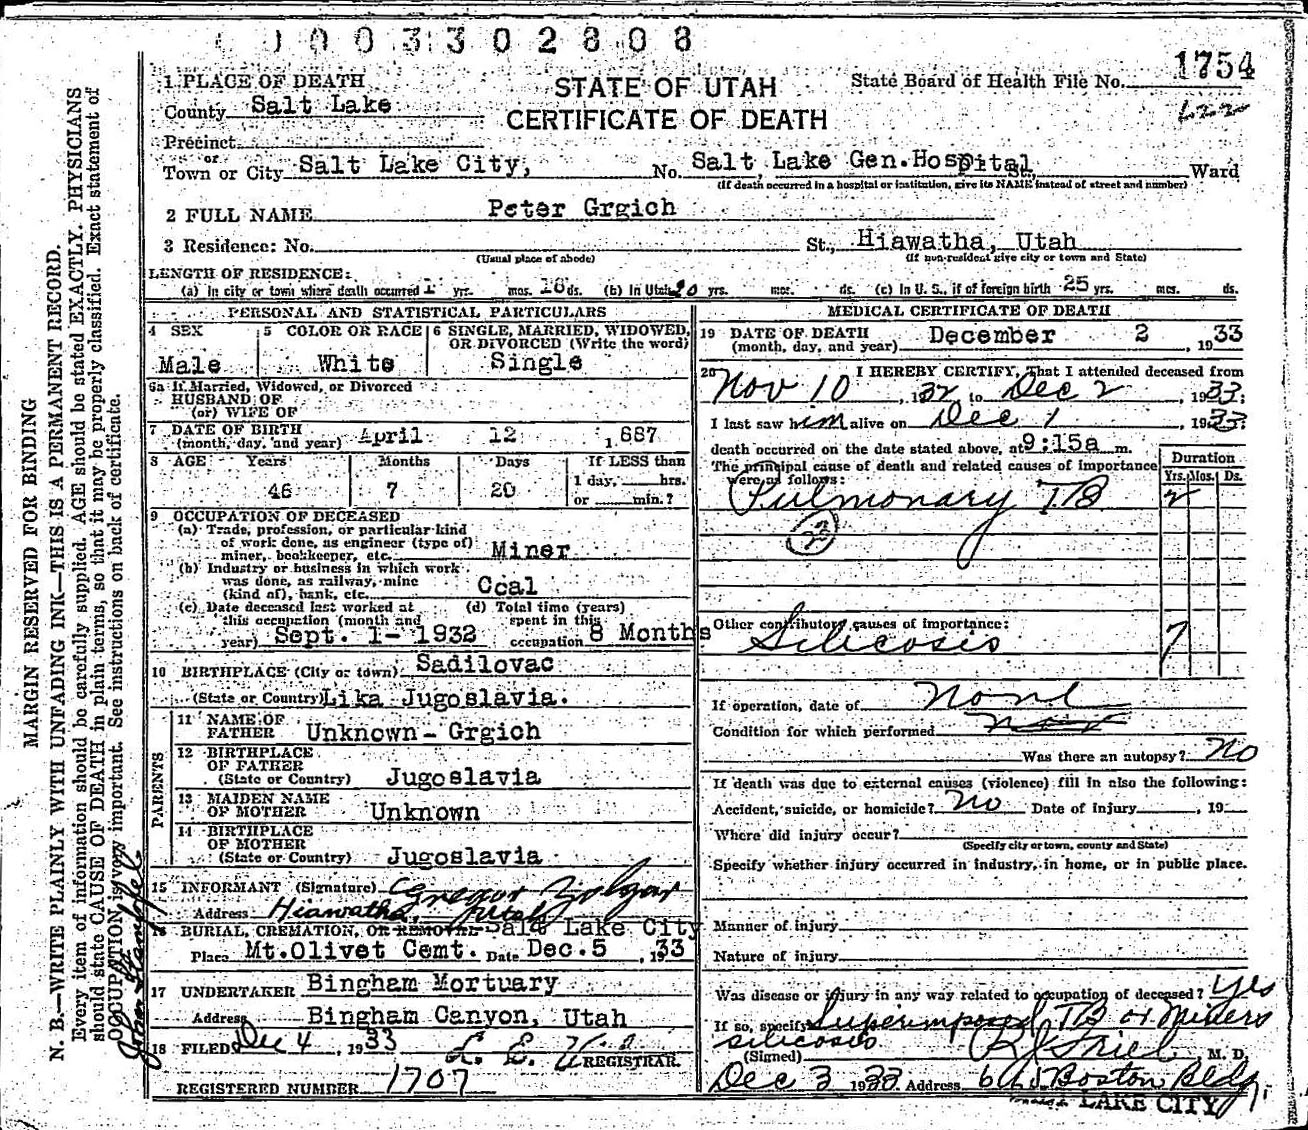 0003302808
1754
622
STATE OF UTAH
CERTIFICATE OF DEATH
State Board of Health File No.
1 PLACE OF DEATH
County Salt Lake
Precinct
or
Town or City Salt Lake City, No. Salt Lake Gen. Hospital St., Ward
(If death occurred in a hospital or institution, give its NAME instead of street and number)
2 FULL NAME Peter Grgich
3 Residence: No. St., Hiawatha, Utah
(Usual place of abode) (If non-resident give city or town and State)
LENGTH OF RESIDENCE:
(a) In city or town where death occurred 1 yrs. mos. 16 ds. (b) In Utah 20 yrs. mos. ds. (c) In U. S., if of foreign birth 25 yrs. mos. ds.
PERSONAL AND STATISTICAL PARTICULARS
4 SEX
Male
5 COLOR OR RACE
White
6 SINGLE, MARRIED, WIDOWED,
OR DIVORCED (Write the word)
Single
6a If Married, Widowed, or Divorced
HUSBAND OF
(or) WIFE OF
7 DATE OF BIRTH
(month, day, and year) April 12 1887
8 AGE Years Months Days If LESS than
46 7 20 1 day, hrs.
or min.?
9 OCCUPATION OF DECEASED
(a) Trade, profession, or particular kind
of work done, as engineer (type of)
miner, bookkeeper, etc. Miner
(b) Industry or business in which work
was done, as railway, mine
(kind of), bank, etc. Coal
(c) Date deceased last worked at
this occupation (month and
year) Sept. 1- 1932
(d) Total time (years)
spent in this
occupation 8 Months
10 BIRTHPLACE (City or town) Sadilovac
(State or Country) Lika Jugoslavia.
PARENTS
11 NAME OF
FATHER Unknown - Grgich
12 BIRTHPLACE
OF FATHER
(State or Country) Jugoslavia
13 MAIDEN NAME
OF MOTHER Unknown
14 BIRTHPLACE
OF MOTHER
(State or Country) Jugoslavia
15 INFORMANT (Signature)
Address Hiawatha, Utah
16 BURIAL, CREMATION, OR REMOVAL Salt Lake City
Place Mt. Olivet Cemt. Date Dec. 5, 1933
17 UNDERTAKER Bingham Mortuary
Address Bingham Canyon, Utah
18 FILED Dec 4, 1933
REGISTRAR.
REGISTERED NUMBER 1707
MEDICAL CERTIFICATE OF DEATH
19 DATE OF DEATH
(month, day, and year) December 2, 1933
20 I HEREBY CERTIFY, That I attended deceased from
Nov 10, 1932 to Dec 2, 1933;
I last saw him alive on Dec 1, 1933;
death occurred on the date stated above, at 9:15a m.
The principal cause of death and related causes of importance
were as follows:
Duration
Yrs. Mos. Ds.
Pulmonary TB 2
23
Other contributory causes of importance:
Silicosis 7
If operation, date of None
Condition for which performed
Was there an autopsy? No
If death was due to external causes (violence) fill in also the following:
Accident, suicide, or homicide? No Date of injury , 19
Where did injury occur?
(Specify city or town, county and State)
Specify whether injury occurred in industry, in home, or in public place.
Manner of injury
Nature of injury
Was disease or injury in any way related to occupation of deceased? Yes
If so, specify Superimposed TB on Miners
silicosis
(Signed) M. D.
Dec 3 1933 Address Boston Bldg.
LAKE CITY
MARGIN RESERVED FOR BINDING
N. B.—WRITE PLAINLY WITH UNFADING INK—THIS IS A PERMANENT RECORD.
Every item of information should be carefully supplied. AGE should be stated EXACTLY. PHYSICIANS
should state CAUSE OF DEATH in plain terms, so that it may be properly classified. Exact statement of
OCCUPATION is very important. See instructions on back of certificate.